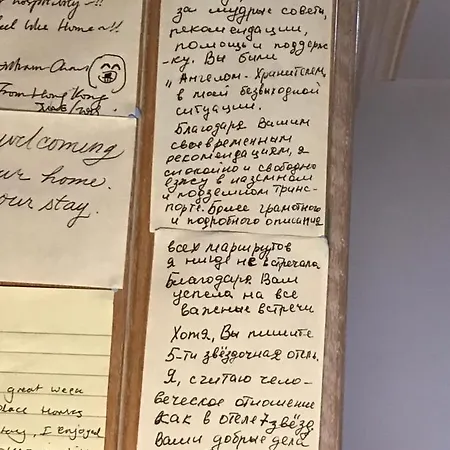 hospitality-!!
feel like Home!!
From Hong Kong
welcoming
our home.
your stay.
great week
place Hanks
story, I enjoyed
за мудрые советы,
рекомендации,
помощь и поддерж-
ку. Вы были
"Ангелом-Хранителем,
в моей безвыходной
ситуации.
Благодаря Вашим
своевременным
рекомендациям, я
спокойно и свободно
езжу в наземном
и подземном транс-
порте. Более грамотного
и подробного описания
всех маршрутов
я нигде не встречала
Благодаря Вам
успела на все
важные встречи
Хотя, Вы пишите
5-ти звёздочная отель.
Я, считаю чело-
веческое отношение
как в отеле 7 звёзд
Ваши добрые дела